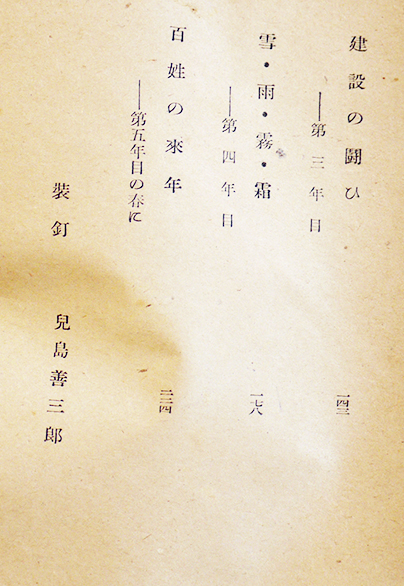 建設の闘ひ
――第三年目
一四三
雪・雨・霧・霜
――第四年目
一七八
百姓の來年
――第五年目の春に
二二四
裝釘 兒島善三郎